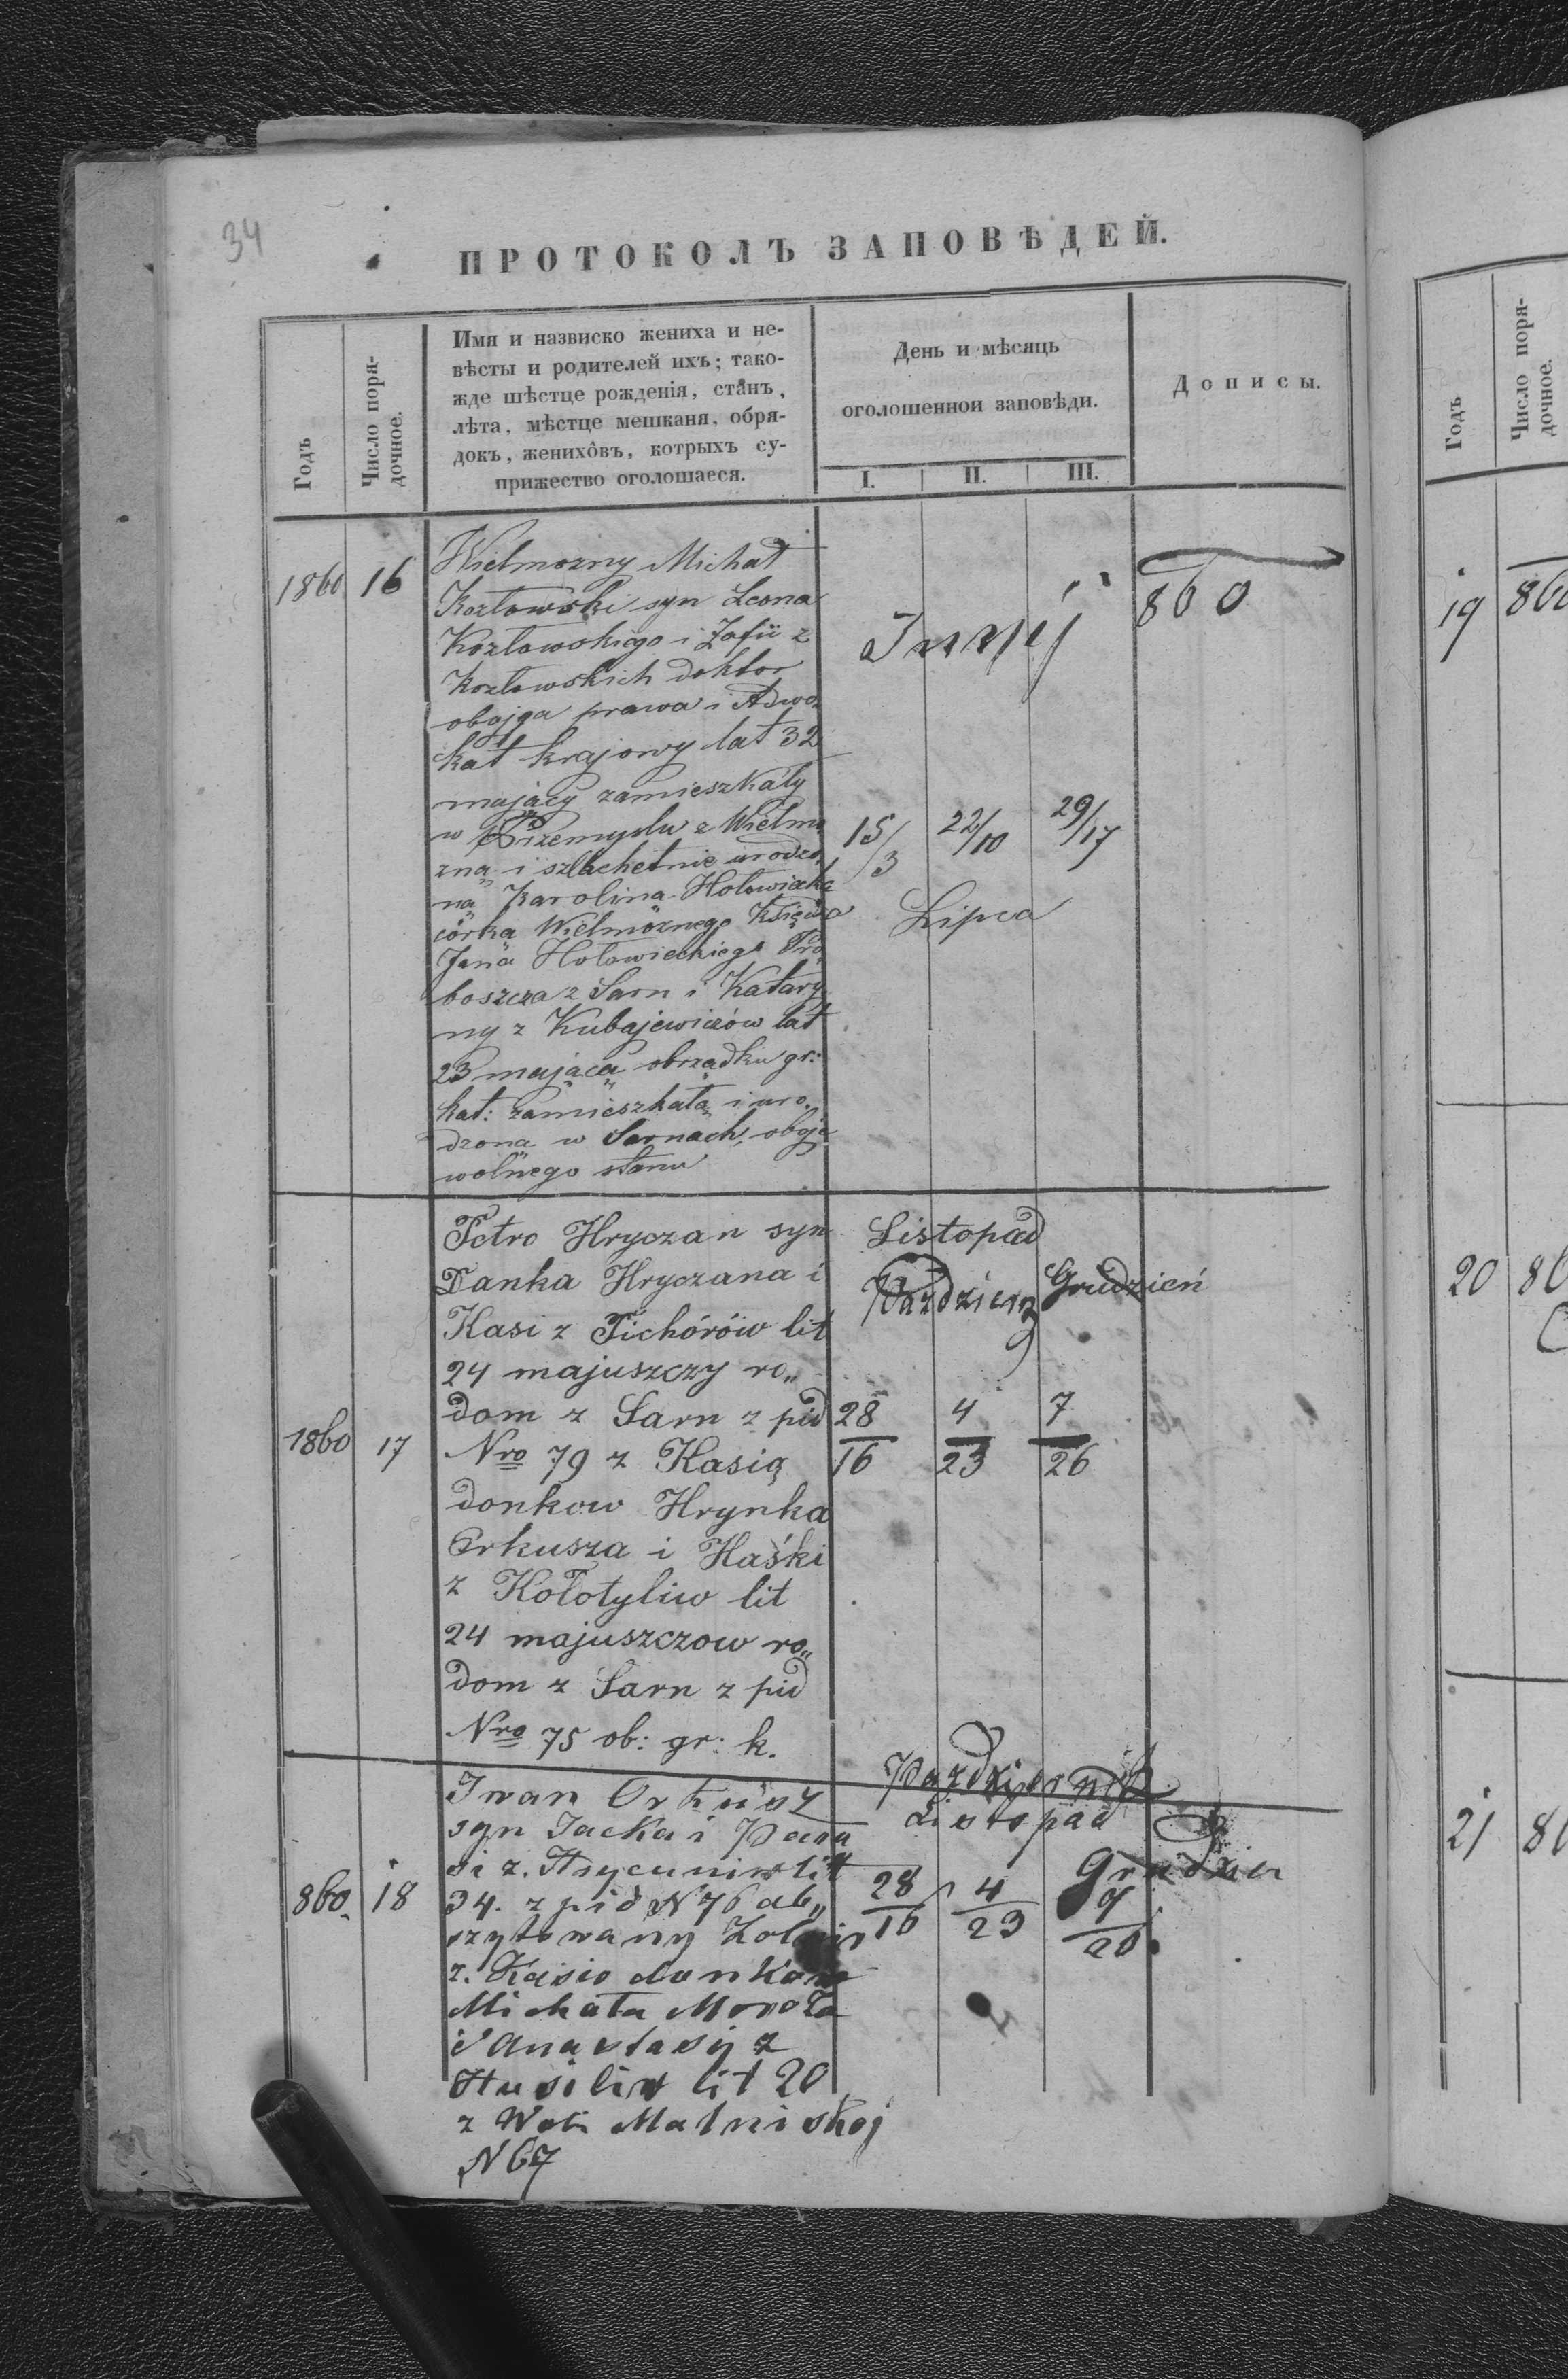 34
ПРОТОКОЛЪ ЗАПОВѢДЕЙ.
Годъ
Число поря-
дочное.
Имя и назвиско жениха и не-
вѣсты и родителей ихъ; тако-
жде шѣстце рожденія, станъ,
лѣта, мѣстце мешканя, обря-
докъ, женихôвъ, котрыхъ су-
прижество оголошаеся.
День и мѣсяць
оголошеннои заповѣди.
I. II. III.
Дописы.
1860 16
Wielmozny Michał
Kozłowski syn Leona
Kozłowskiego i Zofii z
Kozłowskich doktor
obojga prawa i Adwo-
kat krajowy lat 32
mający zamieszkały
w Przemyslu z Wielmo
zną i szlachetnie urodzo
ną Karoliną Hołowiecką
córką Wielmożnego Księdza
Jana Hołowieckiego Pro
boszcza z Sarn i Katarzy
ny z Kubajewiczów lat
23 mającą obrządku gr:
kat: zamieszkałą i uro-
dzona w Sarnach, oboje
wolnego stanu
860
15/3 22/10 29/17
Lipca
1860 17
Petro Hryczan syn
Danka Hryczana i
Kasi z Tichórów lit
24 majuszczy ro„
dom z Sarn z pid
Nro 79 z Kasią
donkow Hrynka
Orkusza i Haśki
z Kołotyliw lit
24 majuszczow ro„
dom z Sarn z pid
Nro 75 ob: gr: k.
Listopad
Pazdzierz Grudzień
28/16 4/23 7/26
860 18
Iwan Orkusz
syn Jacka i Para
si z. Hrycuniw lit
34. z pid N 76 ab„
szytowany Zołnir
z. Kasio donkow
Michała
i Anastasij z
Husiliw lit 20
z Woli
N 67
Pazdziernik
Listopad
Grudzien
28/16 4/23
Годъ
Число поря-
дочное.
19 860
20 86
21 86